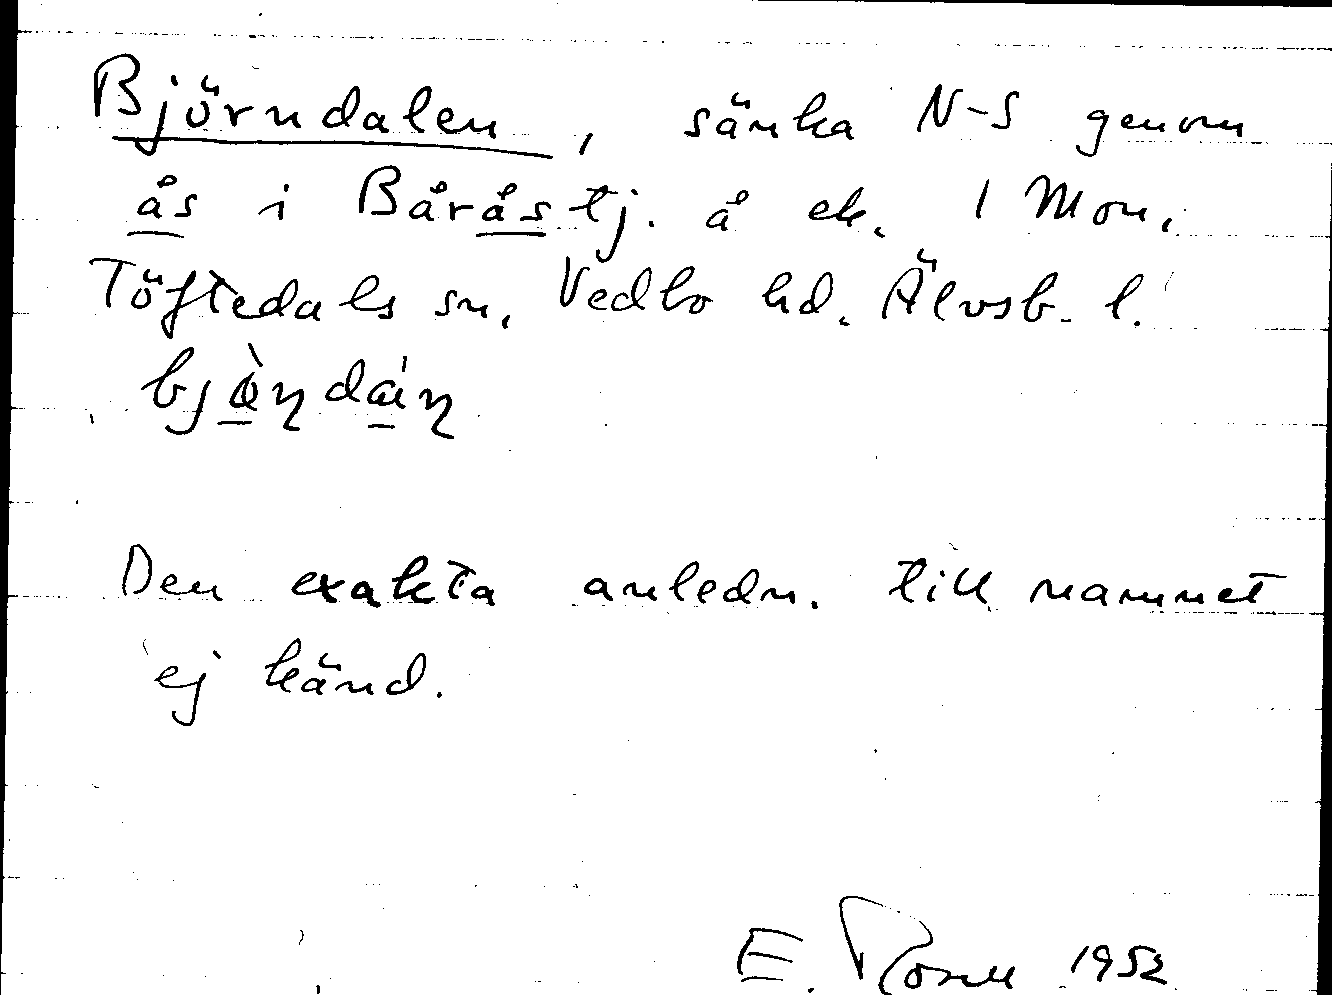 Björndalen, sänka N-S genom
ås i Båråstj. å ek. 1 Mon,
Töftedals sn, Vedbo hd. Älvsb. l.
Den exakta anledn. till namnet
ej känd.
E. Rosell 1952